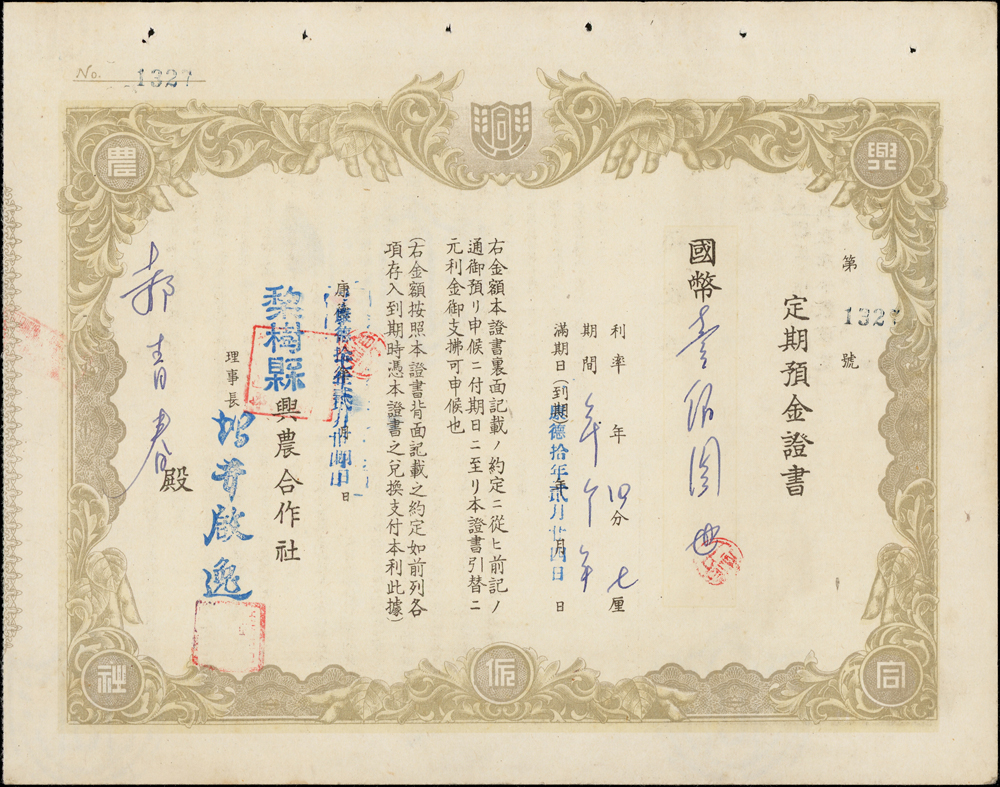 No. 1327
興
農
合
作
社
定期預金證書
第 1327 號
國幣壹佰圓也
利率 年 四分 七厘
期間 年
滿期日(到期) 康德拾年貳月廿四日
右金額本證書裏面記載ノ約定ニ從ヒ前記ノ
通御預リ申候ニ付期日ニ至リ本證書引替ニ
元利金御支拂可申候也
(右金額按照本證書背面記載之約定如前列各
項存入到期時憑本證書之兌換支付本利此據)
康德 年貳月廿四日
黎樹縣興農合作社
理事長
郝青春殿